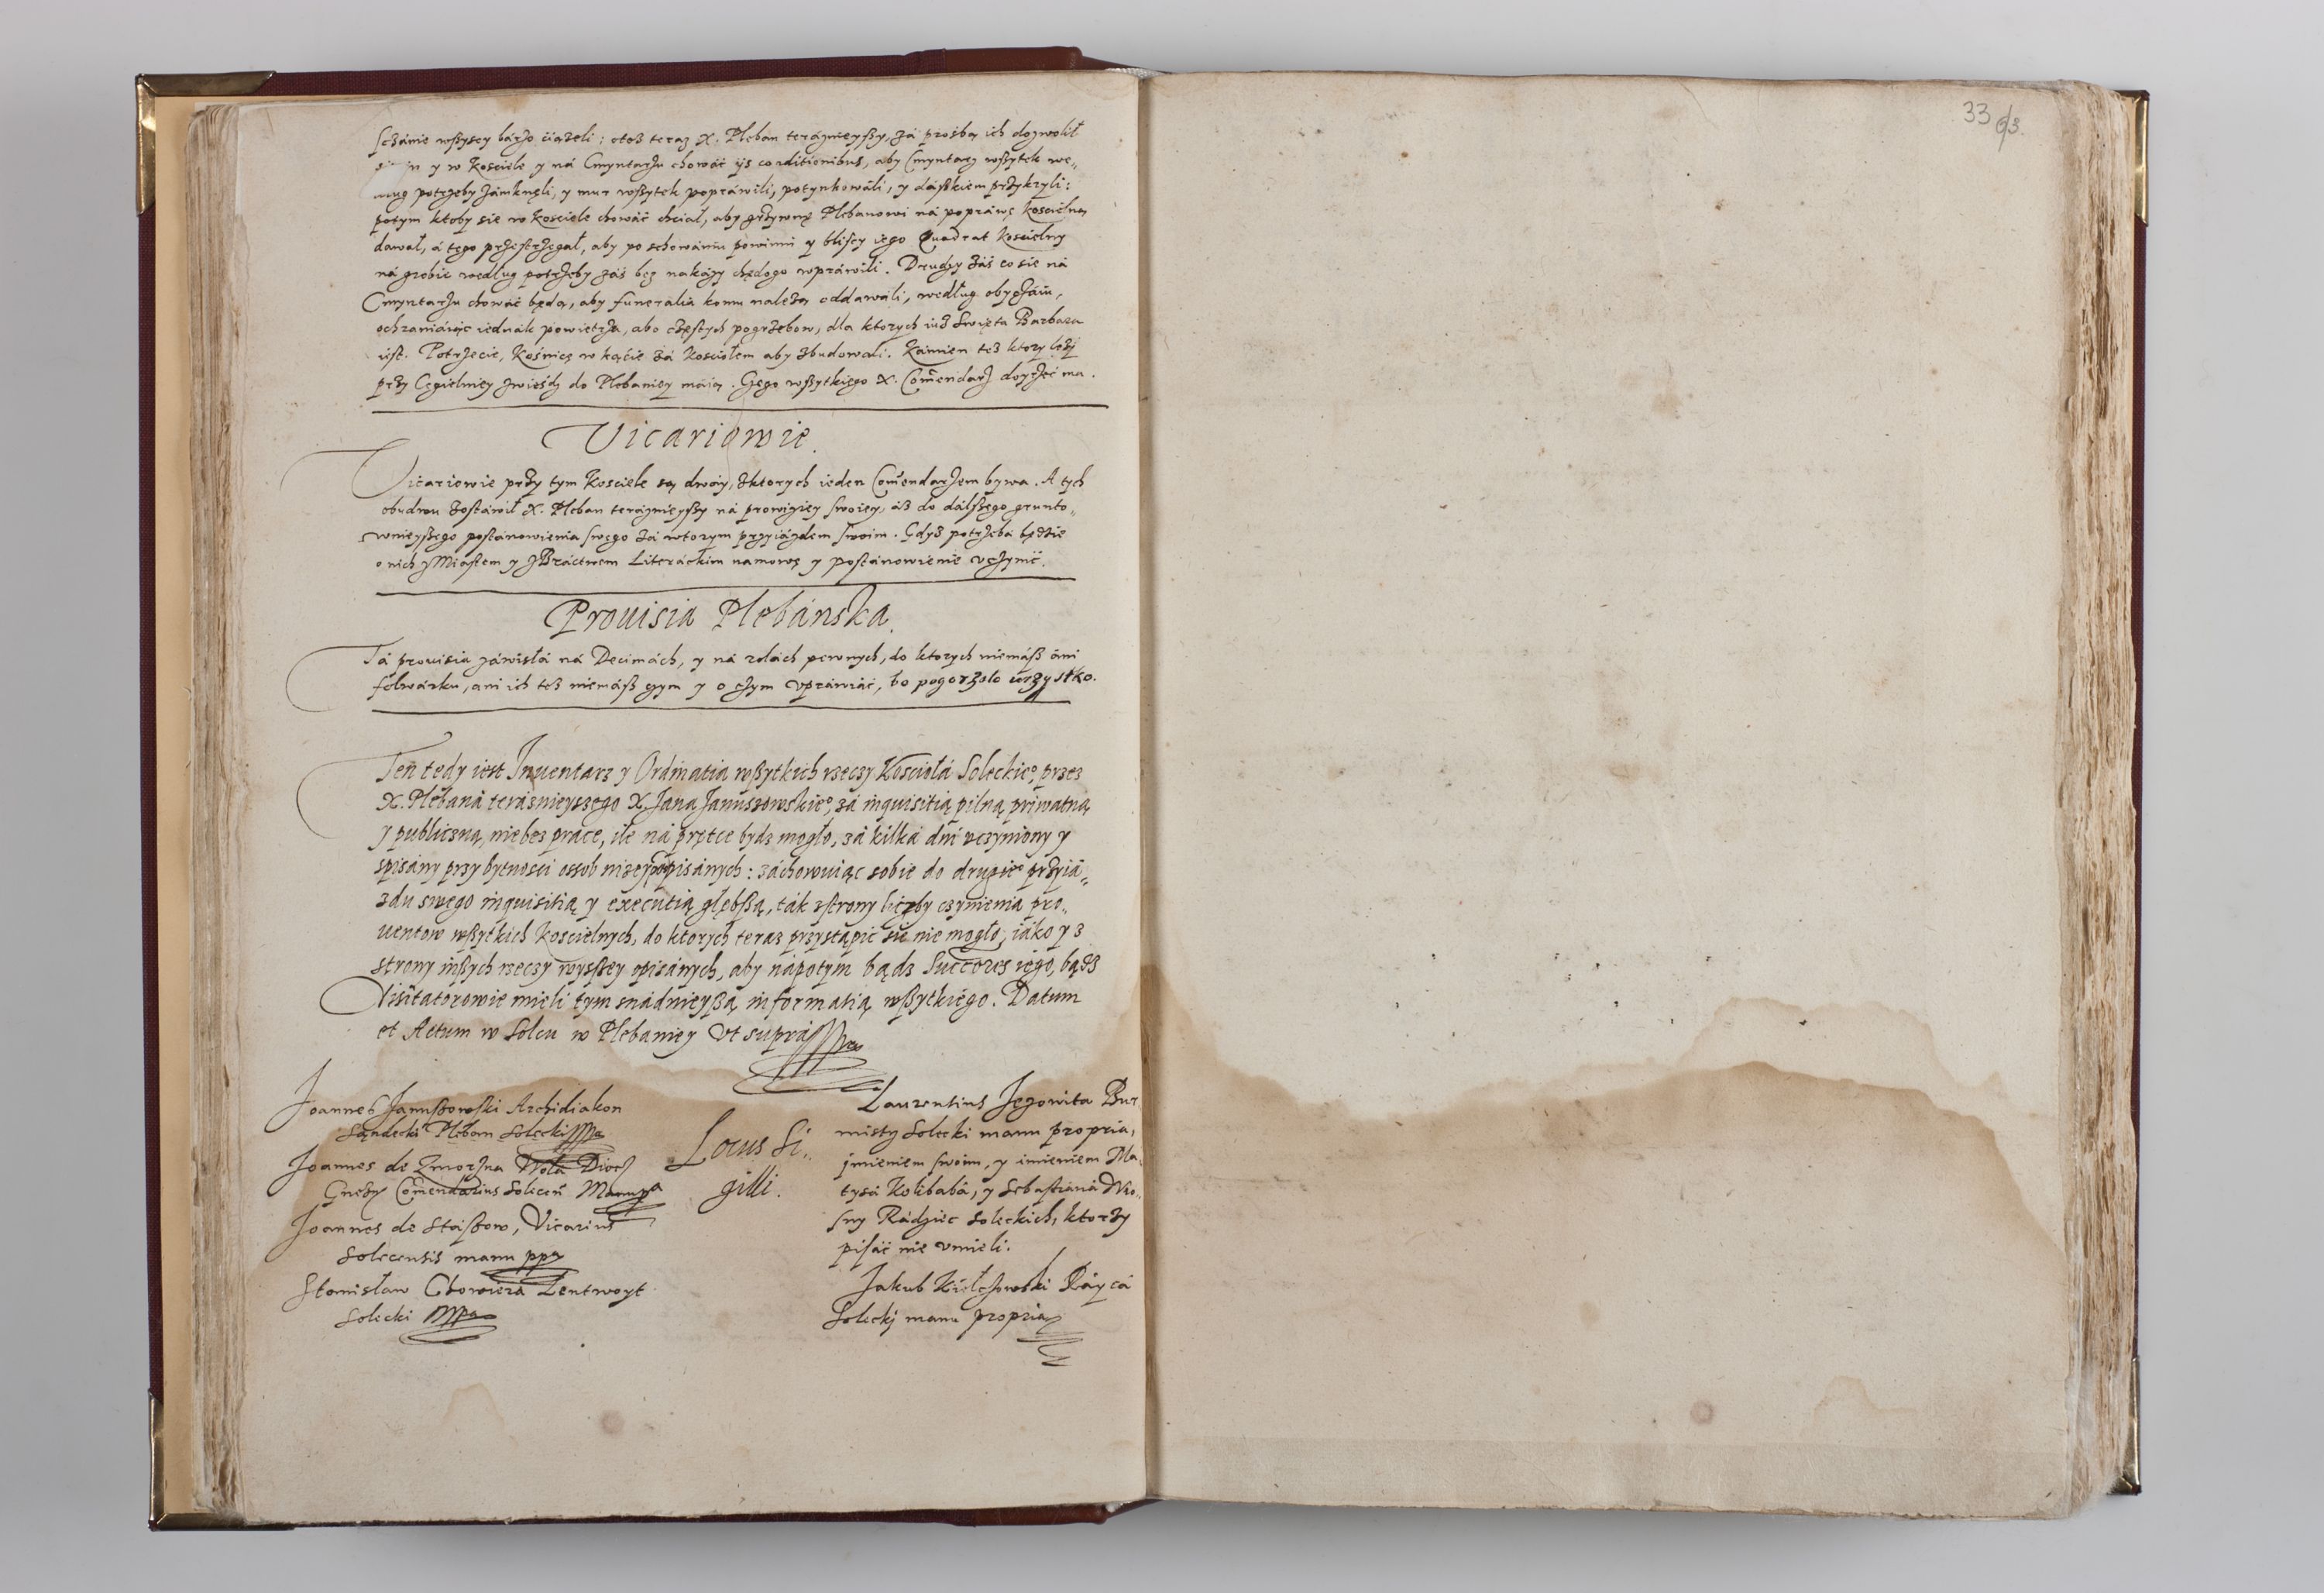 sczánie wßyscy bárzo ciążeli: otoż teraz X. Pleban teráznieyßy, zá prośbą ich dozwolił
y w Kościele y ná Cmyntarzu chowáć ijs conditionibus, aby Cmyntarz wßytek we„
potrzeby zámknęli, y mur wßytek popráwili, potynkowáli, y dáßkiem przykryli:
potym ktoby sie w Kościele chowáć chciał, aby grzywnę Plebanowi ná popráwę Kościelną
dawał, á tego przestrzegał, aby po schowániu powinni y bliscy iego Quadrat Kościelny
ná grobie według potrzeby záś bez nakázy chędogo wpráwili. Drudzy záś co sie ná
Cmyntarzu chowáć będą, aby funeralia komu należą oddawáli, według obyczáiu,
ochraniáiąc iednák powietrza, abo częstych pogrzebow, dla ktorych iuż Święta Barbara
iest. Potrzecie, Kośnicę w kącie zá Kościołem aby zbudowáli. Kámien też ktory leży
przy Cegielniey zwieśdź do Plebaniey máią. Czego wßytkiego X. Comendarz doyrzeć ma.
Vicariowie.
Vicariowie przy tym Kościele są dwáy, z ktorych ieden Comendarzem bywa. A tych
obudwu zostáwił X. Pleban teráznieyßy ná prowiziey swoiey, áż do dálßego grunto„
wnieyßego postanowienia swego zá wtorym przyiázdem swoim. Gdyż potrzebá będzie
o nich z Miástem y z Bráctwem Literáckim namowę y postánowienie vczynić.
Prouisia Plebánska.
Tá prouisia záwisłá ná Decimách, y ná rolách pewnych, do ktorych niemáß áni
folwárku, ani ich też niemáß czym y o czym vpráwiáć, bo pogorzáło wszystko.
Ten tedy iest Inuentarz y Ordinatia wßytkich rzeczy Kościołá Soleckie°, przez
X. Plebaná teráznieyszego X. Jana Januszowskie°, zá inquisitią pilną, priwatną
y publiczną, niebez prace, ile ná prętce bydz mogło, zá kilká dni vczyniony y
spisány przy bytnosci ossob niżey podpisánych: záchowuiąc sobie do drugie° przyiá„
zdu swego inquisitią y executią głębßą, ták z strony liczby czynienia pro„
uentow wßytkich Koscielnych, do ktorych teraz przystąpić się nie mogło, iáko y z
strony inßych rzeczy wyssßey opisánych, aby nápotym bądz Succores iego, bądz
Visitatorowie mieli tym snádnieyßą informatią wßytkiego. Datum
et Actum w Solcu w Plebaniey Vt supra
Joannes Janußowski Archidiakon
Sąndecki Pleban Solecki mpa
Joannes de Zmorzna Wola Diocz
Gnezn Comendarius Solecen Manu pa
Joannes de Staßow, Vicarius
Solecensis manu ppa
Stanisław Chowiera Lentwoyt
Solecki Mpa
Locus Si„
gilli.
Laurentius Jezowita Bur
mistz Solecki manu propria,
imieniem swoim, y imieniem Ma„
tysá Kolibabá, y Sebastianá Wio„
sny Rádziec Soleckich, ktorzy
pisáć nie vmieli.
Jakub Kiełczowski Ráycá
Solecki manu propria
33